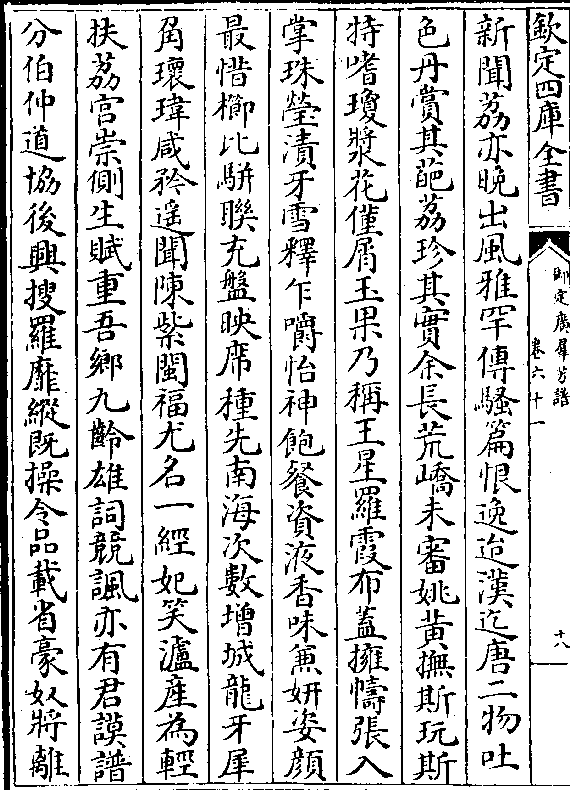 欽定四庫全書
御定廣羣芳譜
卷六十一
十八
新聞荔亦晚出風雅罕傳騷篇恨逸迨漢迄唐二物吐
色丹賞其葩荔珍其實余長荒嶠未審姚黄撫斯玩斯
特嗜瓊漿花僅屑玉果乃稱王星羅霞布蓋擁幬張入
掌珠瑩漬牙雪釋乍嚼怡神飽餐資液香味兼妍姿顔
最惜櫛比駢聯充盤映席種先南海次數增城龍牙犀
角瓌瑋咸矜遥聞陳紫閩福尤名一經妃笑瀘産為輕
扶荔宫崇側生賦重吾鄉九齡雄詞競諷亦有君謨譜
分伯仲道協後興搜羅靡縱既操令品載省豪奴將離